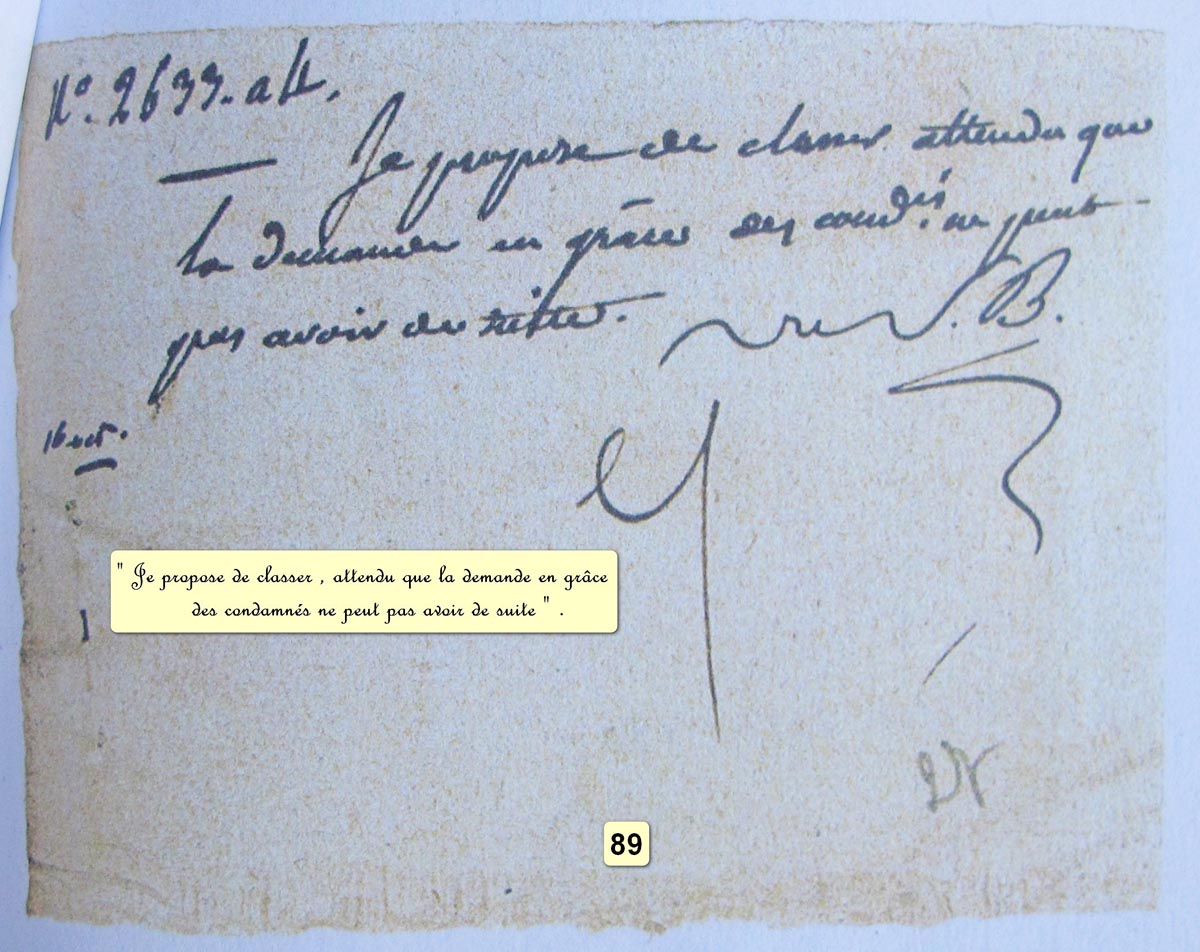 N°. 2633. att.
Je propose de classer attendu que
la demande en grâce des cond.és ne peut
pas avoir de suite.
B.
16 oct.
" Je propose de classer , attendu que la demande en grâce
des condamnés ne peut pas avoir de suite " .
89